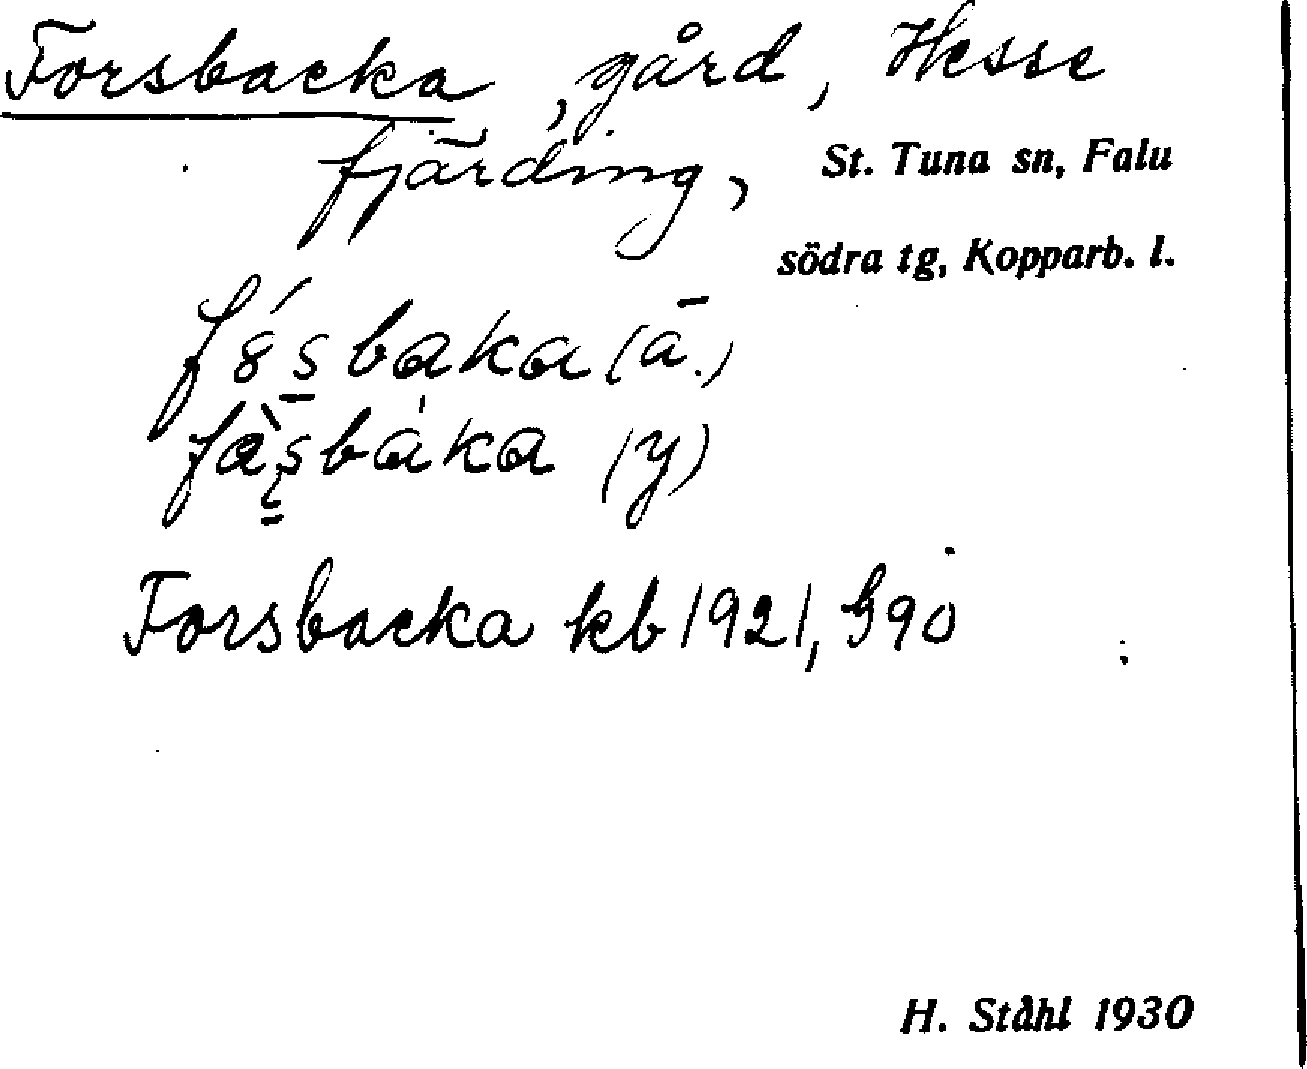 Forsbacka, gård, Hesse
fjärding, St. Tuna sn, Falu
södra tg, Kopparb. l.
fósbaka (ä.)
fàsbaka (y)
Forsbacka kb 1921, G90
H. Ståhl 1930